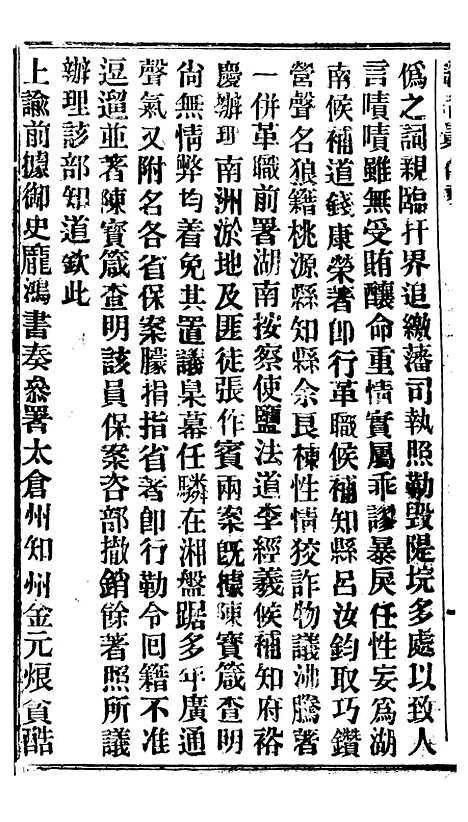 偽之詞親臨扞界追繳藩司執照勒毀隄垸多處以致人
言嘖嘖雖無受賄釀命重情實屬乖謬暴戾任性妄為湖
南候補道錢康榮著卽行革職候補知縣呂汝鈞取巧鑽
營聲名狼籍桃源縣知縣余良棟性情狡詐物議沸騰著
一併革職前署湖南按察使鹽法道李經羲候補知府裕
慶辦理南洲淤地及匪徒張作賓兩案旣據陳寶箴查明
尙無情弊均着免其置議臬幕任驎在湘盤踞多年廣通
聲氣又附名各省保案朦捐指省著卽行勒令回籍不准
逗遛並著陳寶箴查明該員保案咨部撤銷餘著照所議
辦理該部知道欽此
上諭前據御史龐鴻書奏叅署太倉州知州金元烺貪酷